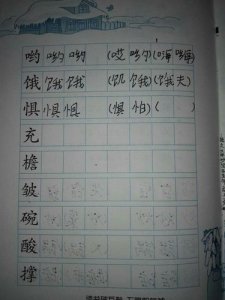 哟 哟 哟 (哎 哟)(嗨 哟)
饿 饿 饿 (饥 饿)(饿 夫)
惧 惧 惧 (惧 怕)( )
充
檐
皱
碗
酸
撑